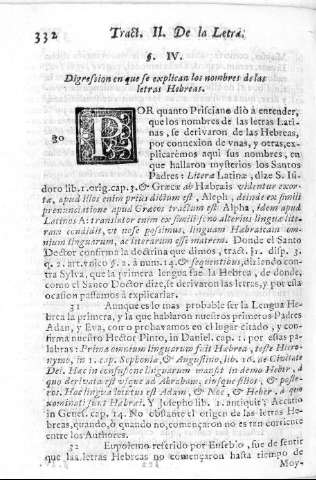 332 Tract. II. De la Letra.
§. IV.
Digression en que se explican los nombres de las
letras Hebreas.
30 POR quanto Prisciano diò à entender,
que los nombres de las letras Lati-
nas, se derivaron de las Hebreas,
por connexion de vnas, y otras, ex-
plicarèmos aqui sus nombres, en
que hallaron mysterios los Santos
Padres: Literæ Latinæ, dize S. Isi-
doro lib. 1. orig. cap. 3. & Græcæ ab Habrais videntur exor-
tæ, apud illos enim priùs dictum est, Aleph, deinde ex simili
prenunciatione apud Græcos tractum est Alpha, idem apud
Latinos A: translator enim ex simili sono alterius linguæ lite-
ram condidit, vt nosse possimus, linguam Hebraicam om-
nium linguarum, ac literarum esse matrem. Donde el Santo
Doctor confirma la doctrina que dimos, tract. 1. disp. 3.
q. 2. art. vnico §. 2. à num. 14. & sequentibus, diziendo con-
tra Sylva, que la primera lengua fue la Hebrea, de donde,
como el Santo Doctor dize, se derivaron las letras, y por esta
ocasion passamos à explicarlas.
31 Aunque es lo mas probable ser la Lengua He-
brea la primera, y la que hablaron nuestros primeros Padres
Adan, y Eva, como probavamos en el lugar citado, y con-
firma nuestro Hector Pinto, in Daniel. cap. 1. por estas pa-
labras: Prima omnium linguarum fuit Hebræa, teste Hiero-
nymo, in 1. cap. Sophoniæ, & Augustino, lib. 16. de Civitate
Dei. Hæc in confusione linguarum mansit in domo Heber, à
quo derivata est vsque ad Abraham, eiusque filios, & poste-
ros. Hac lingua locutus est Adam, & Noë, & Heber, à quo
nominati sunt Hebræi. Y Josepho lib. 1. antiquit. Acentio
in Genes. cap. 14. No obstante el origen de las letras He-
breas, quando, ò quando no, començaron no es tan corriente
entre los Authores.
32 Eupolemo referido por Eusebio, fue de sentir
que las letras Hebreas no començaron hasta tiempo de
Moy-